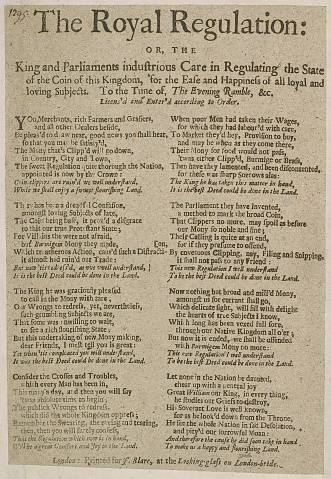 1295.
The Royal Regulation:
OR, THE
King and Parliaments industrious Care in Regulating the State
of the Coin of this Kingdom, for the Ease and Happiness of all loyal and
loving Subjects. To the Tune of, The Evening Ramble, &c.
Licens'd and Enter'd according to Order.
YOu Merchants, rich Farmers and Grasiers,
and all other Dealers beside,
Be pleas'd to draw near, good news you shall hear,
so that you may be satisfy'd,
The Mony that's Clipp'd will go down,
in Country, City and Town,
The sweet Regulation quite thorough the Nation,
appointed is now by the Crown:
Coin clippers are ruin'd we well understand,
While we shall enjoy a sweet flourishing Land.
There has been a dreadful Confusion,
amongst loving Subjects of late,
The Coin being base, it prov'd a disgrace
to this our true Protestant State;
For Villains they were not afraid,
but Burmigem Mony they made,
Which treacherous Action, caus'd such a Distracti-
is almost had ruin'd our Trade:
But now 'tis call'd, as we well understand,
It is the best Deed could be done in the Land.
The King he was graciously pleased
to call in the Mony with care,
Our Wrongs to redress, yet, nevertheless,
such grumbling Subjects we are,
That some was unwilling to wait,
to see a rich flourishing State;
But this undertaking of new Mony making,
dear Friends, I must tell you is great:
Yet when 'tis compleated you will understand,
It was the best Deed could be done in the Land.
Consider the Crosses and Troubles,
which every Man has been in,
This many a day, and then you will say
'twas about time to begin,
The publick Wrongs to redress,
which did the whole Kingdom oppress;
Remember the Swearing, the staring and tearing,
then you will surely confess,
That the Regulation which now is in hand,
Will be a great comfort and Joy to the Land.
When poor Men had taken their Wages,
for which they had labour'd with care,
To Market they'd hye, Provision to buy,
and may be when as they come there,
Their Mony for food would not pass,
'twas either Clipp'd, Burmigem or Brass,
Then have they lamented, and been discontented,
for these was sharp Sorrows alas:
The King he has taken this matter in hand,
It is the best Deed could be done in the Land.
The Parliament they have invented,
a method to mark the broad Coin,
That Clippers no more, may spoil as before
our Mony so noble and fine;
Their Calling is quite at an end,
for if they presume to offend,
By covetous Clipping, nay, Filing and Snipping,
it shall not pass to any Friend:
This new Regulation I well understand
To be the best Deed could be done in the Land.
Now nothing but broad and mill'd Mony,
amongst us for currant shall go,
Which delicate sight, will fill with delight
the hearts of true Subjects I know,
Which long has been vexed full sore,
through our Native Kingdom all o'er;
But now it is ended, we shall be offended
with Burmigem Mony no more:
This new Regulation I well understand
To be the best Deed could be done in the Land.
Let none in the Nation be daunted,
chear up with a central joy
Great William our King, in every thing,
he studies our Griefs to destroy,
His Soveraign Love is well known,
for as he look'd down from the Throne,
He saw the whole Nation in sad Desolation,
and pity'd our sorrowful Moan:
And therefore the cause he did soon take in hand
To make us a happy and flourishing Land.
London: Printed for J. Blare, at the Looking-glass on London-bridge.